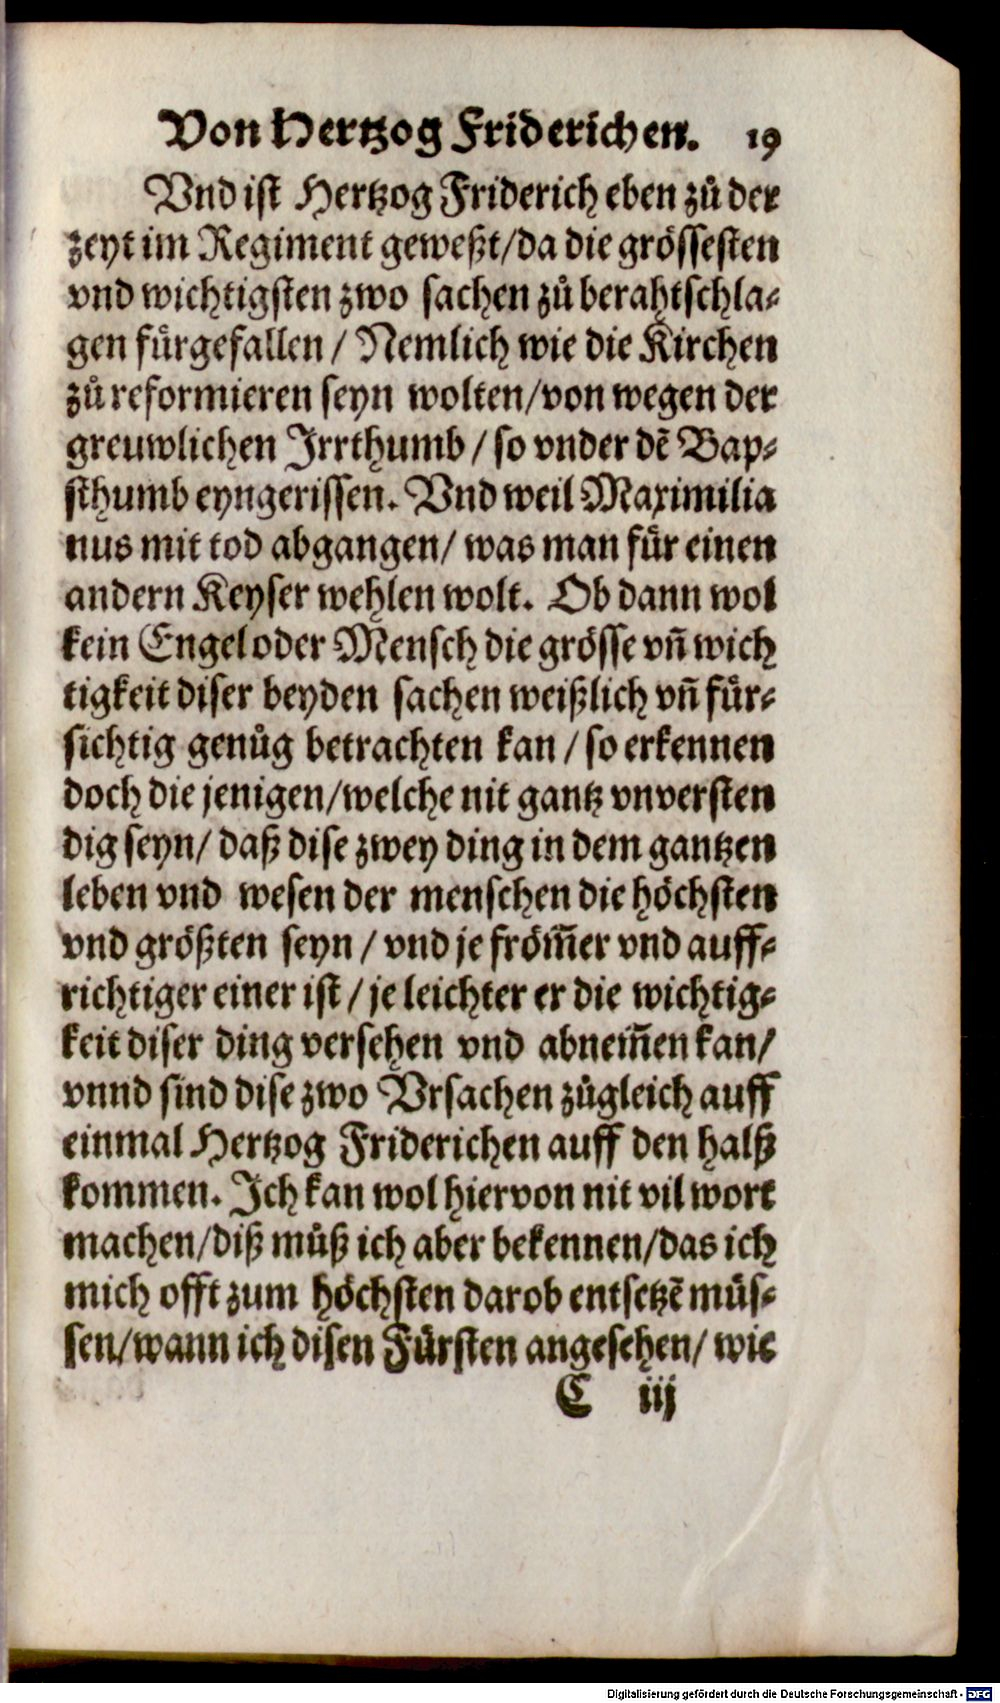 Von Hertzog Friderichen. 19
Vnd ist Hertzog Friderich eben zů der
zeyt im Regiment geweßt/da die grössesten
vnd wichtigsten zwo sachen zů berahtschla-
gen fürgefallen / Nemlich wie die Kirchen
zů reformieren seyn wolten/von wegen der
greuwlichen Irrthumb / so vnder dē Bap-
sthumb eyngerissen. Vnd weil Maximilia
nus mit tod abgangen/ was man für einen
andern Keyser wehlen wolt. Ob dann wol
kein Engel oder Mensch die grösse vn̄ wich
tigkeit diser beyden sachen weißlich vn̄ für-
sichtig genůg betrachten kan / so erkennen
doch die jenigen/welche nit gantz vnversten
dig seyn/ daß dise zwey ding in dem gantzen
leben vnd wesen der menschen die höchsten
vnd größten seyn / vnd je from̄er vnd auff-
richtiger einer ist / je leichter er die wichtig-
keit diser ding versehen vnd abnem̄en kan/
vnnd sind dise zwo Vrsachen zůgleich auff
einmal Hertzog Friderichen auff den halß
kommen. Ich kan wol hiervon nit vil wort
machen/diß můß ich aber bekennen/das ich
mich offt zum höchsten darob entsetzē müs-
sen/wann ich disen Fürsten angesehen/ wie
C iij
Digitalisierung gefördert durch die Deutsche Forschungsgemeinschaft - DFG